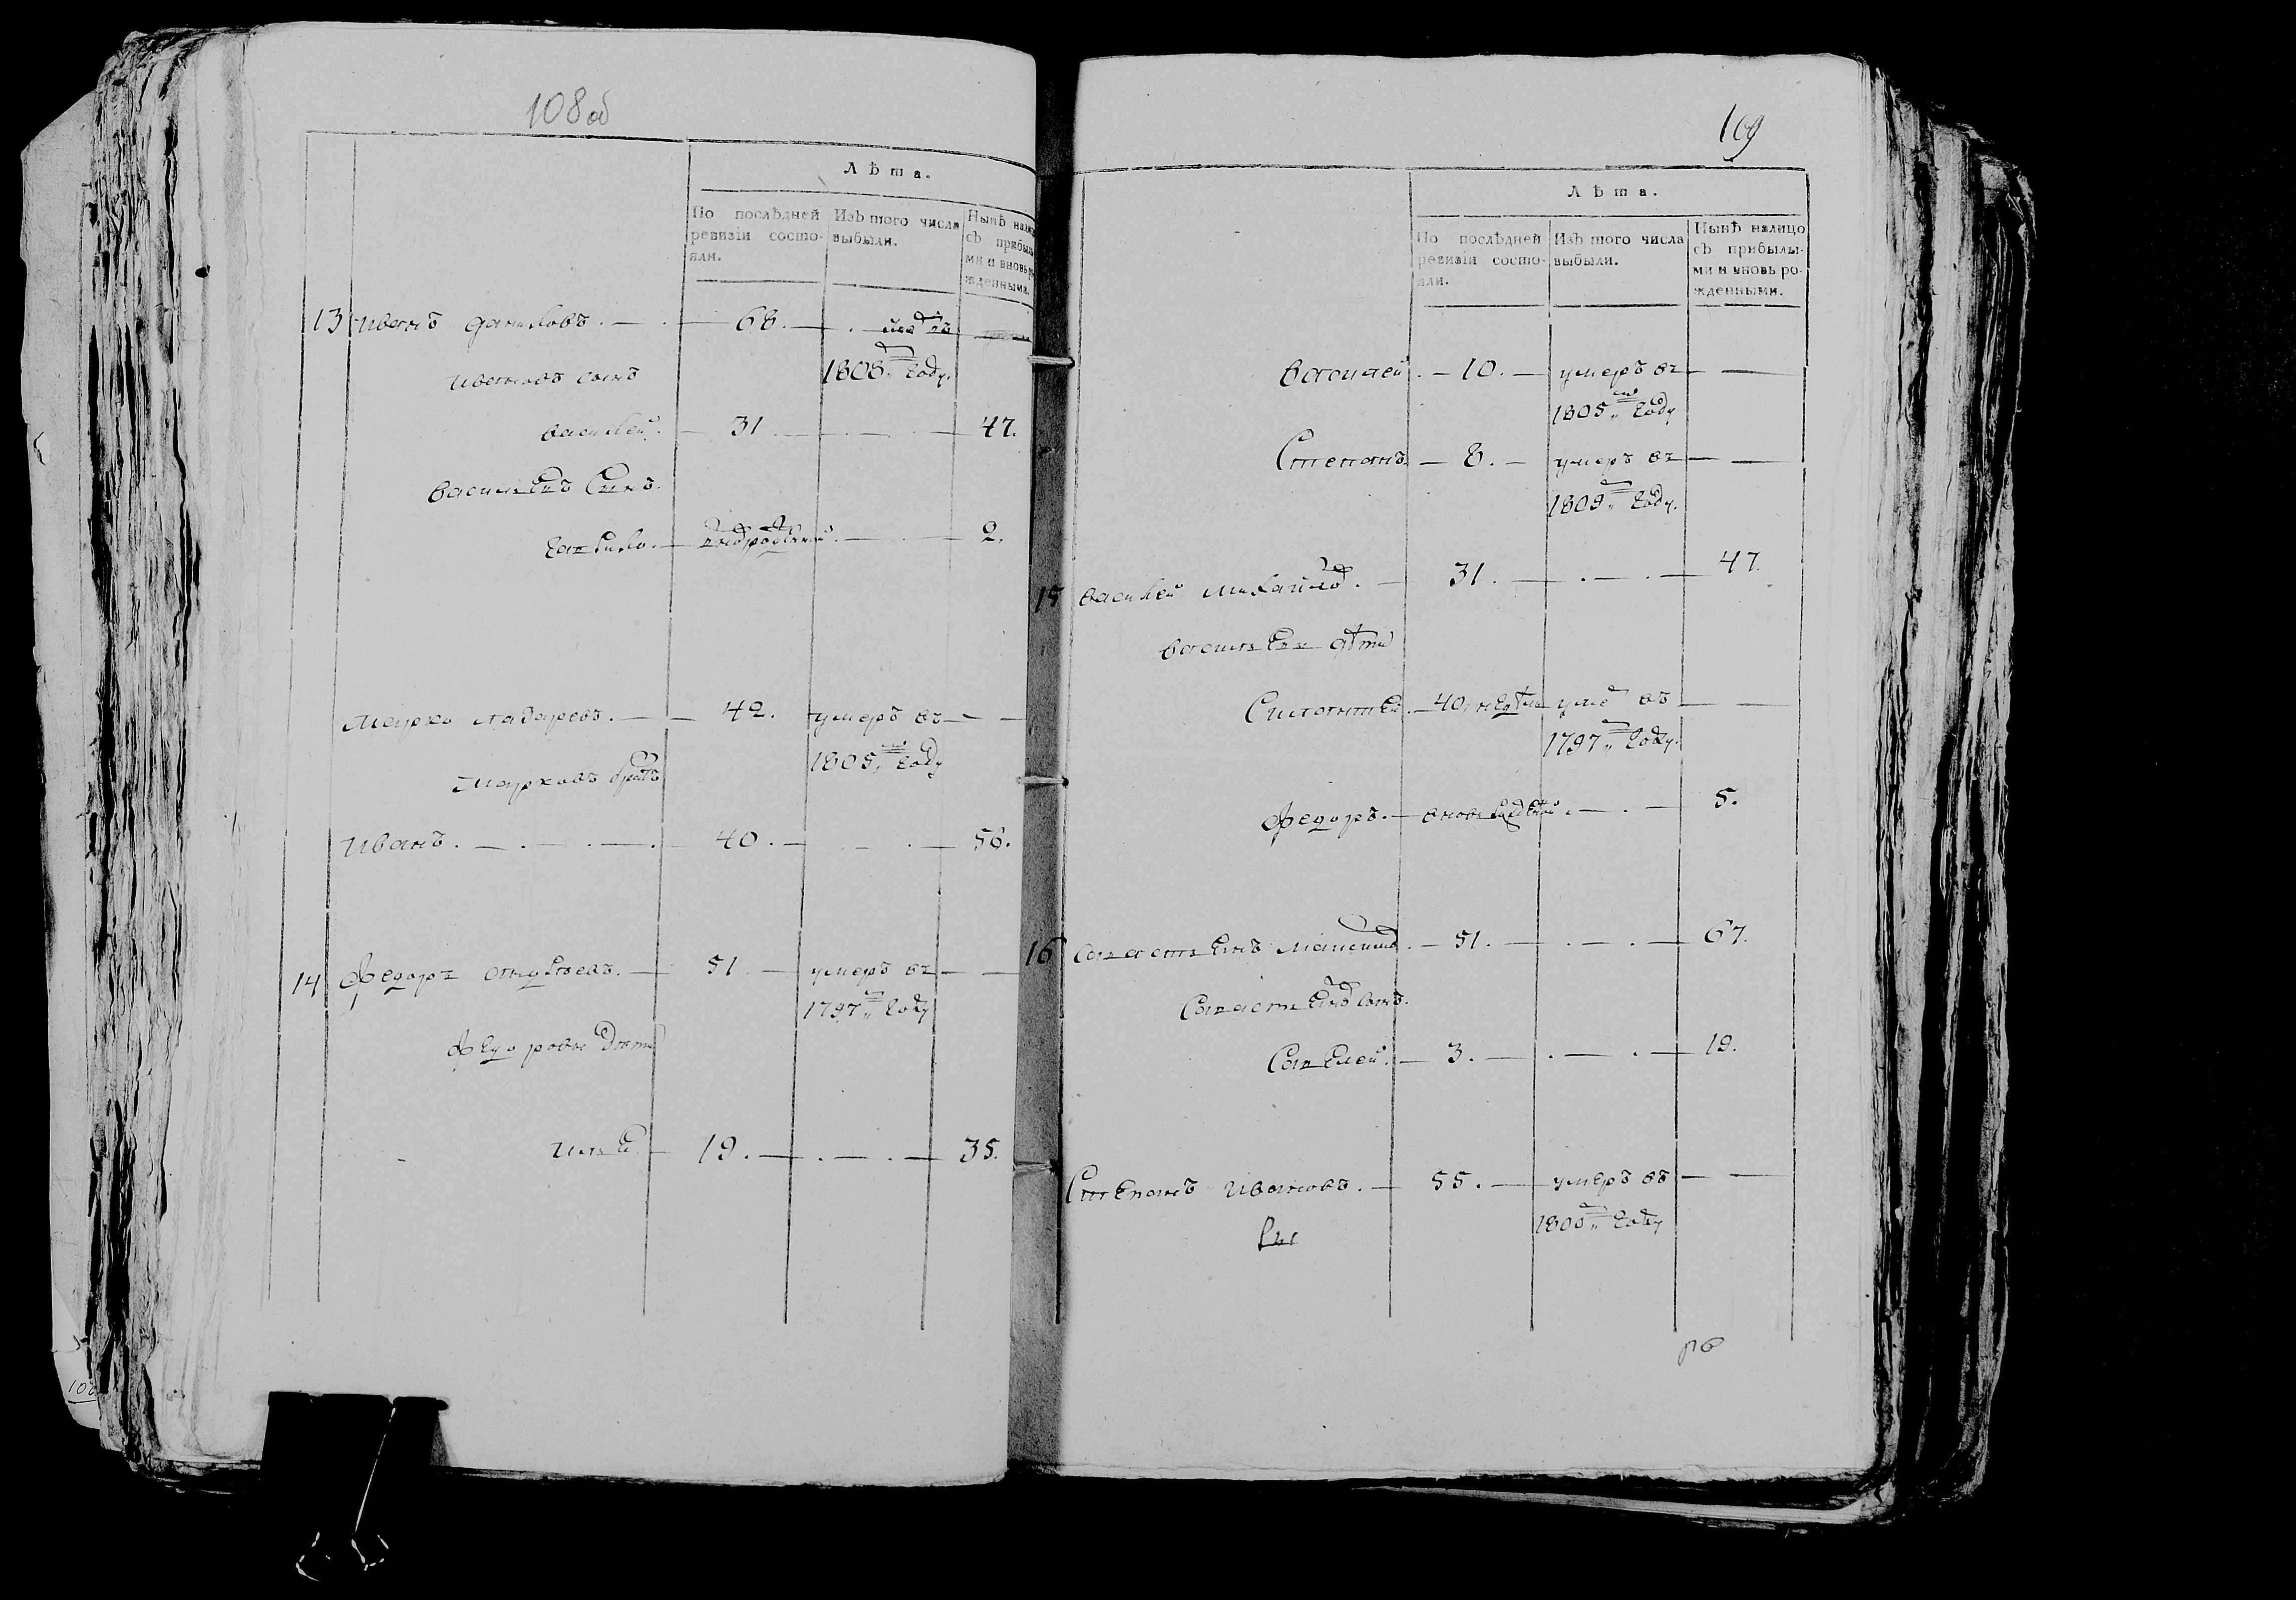 108 об
Лѣта.
По послѣдней ревизіи состо-
яли.
Изъ того числа
выбыли.
Нынѣ
съ
ми и вновь
жденными.
13 Иванъ Даниловъ. — 68. —
1808 году.
Ивановъ сынъ
Василей. — 31 — 47.
Васильевъ Сынъ.
Гаврило. — 2.
Марко Лазаревъ. — 42. умеръ въ —
1805 году
Марковъ братъ
Иванъ. — 40. — 56.
14 Федоръ — 51 — умеръ въ —
1797 году
Федоровы дѣти
Илья — 19. — 35.
109
Лѣта.
По послѣдней
ревизіи состо-
яли.
Изъ того числа
выбыли.
Нынѣ налицо
съ прибылы-
ми и вновь ро-
жденными.
Василей. — 10. — умеръ въ —
1805 году
Степанъ — 8. — умеръ въ —
1809 году.
15 Василей Михайловъ. — 31. — 47.
Васильевы дѣти
40 недѣль уме въ —
1797 году.
Федоръ. — вновь — 5.
16 — 51. — 67.
сынъ.
Савелей. — 3. — 19.
Степанъ Ивановъ. — 55. — умеръ въ —
1800 году